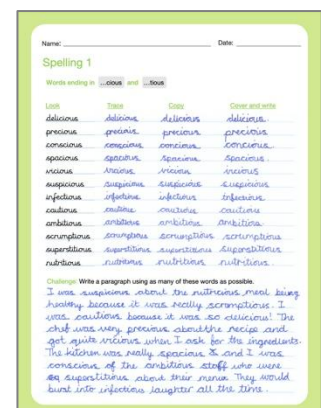 Name: Date:
Spelling 1
Words ending in ...cious and ...tious
Look Trace Copy Cover and write
delicious delicious delicious delicious
precious precious precious precious
conscious conscious concious concious.
spacious spacious spacious spacious.
vicious vicious vicious vicious
suspicious suspicious suspicious suspicious
infectious infectious infectious infectious
cautious cautious cautious cautious
ambitious ambitious ambitious ambitious
scrumptious scrumptious scrumptious scrumptious
superstitious superstitious superstitious superstitious
nutritious nutritious nutritious nutritious.
Challenge: Write a paragraph using as many of these words as possible.
I was suspicious about the nutricious meal being
healthy because it was really scromptious. I
was cautious because it was so delicious! The
chef was very precious about the recipe and
got quite vicious when I ask for the ingredients.
The kitchen was really spacious and I was
conscious of the ambitious staff who were
superstitious about their menu. They would
burst into infectious laughter all the time.